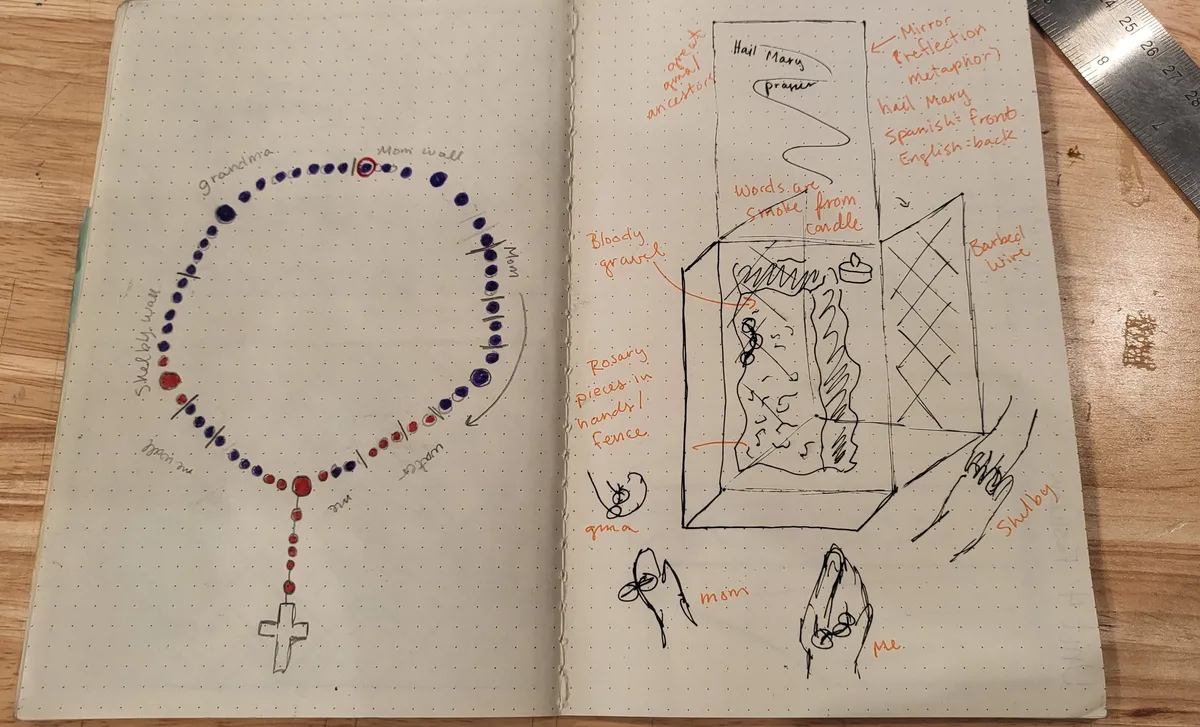 grandma
Mom wall
Mom
Shelby wall
me wall
water
me
great
gma/
ancestors
Hail Mary
prayer
Mirror
(reflection
metaphor)
hail Mary
Spanish: front
English: back
words are
smoke from
candle
Bloody
gravel
Barbed
wire
Rosary
pieces in
hands/
fence
gma
mom
me
Shelby
24
25
26
27
28
8